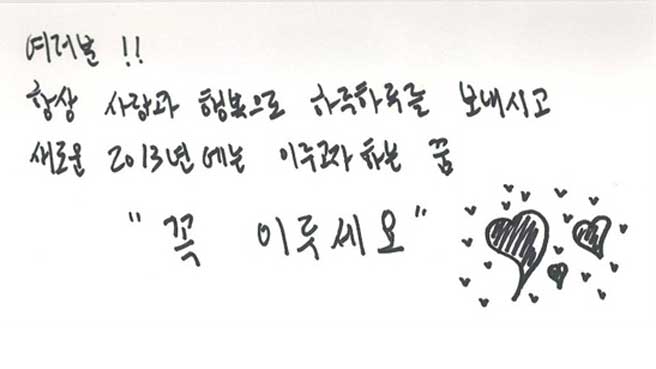 여러분 !!
항상 사랑과 행복으로 하루하루를 보내시고
새로운 2013년에는 이루고자 하는 꿈
"꼭 이루세요"